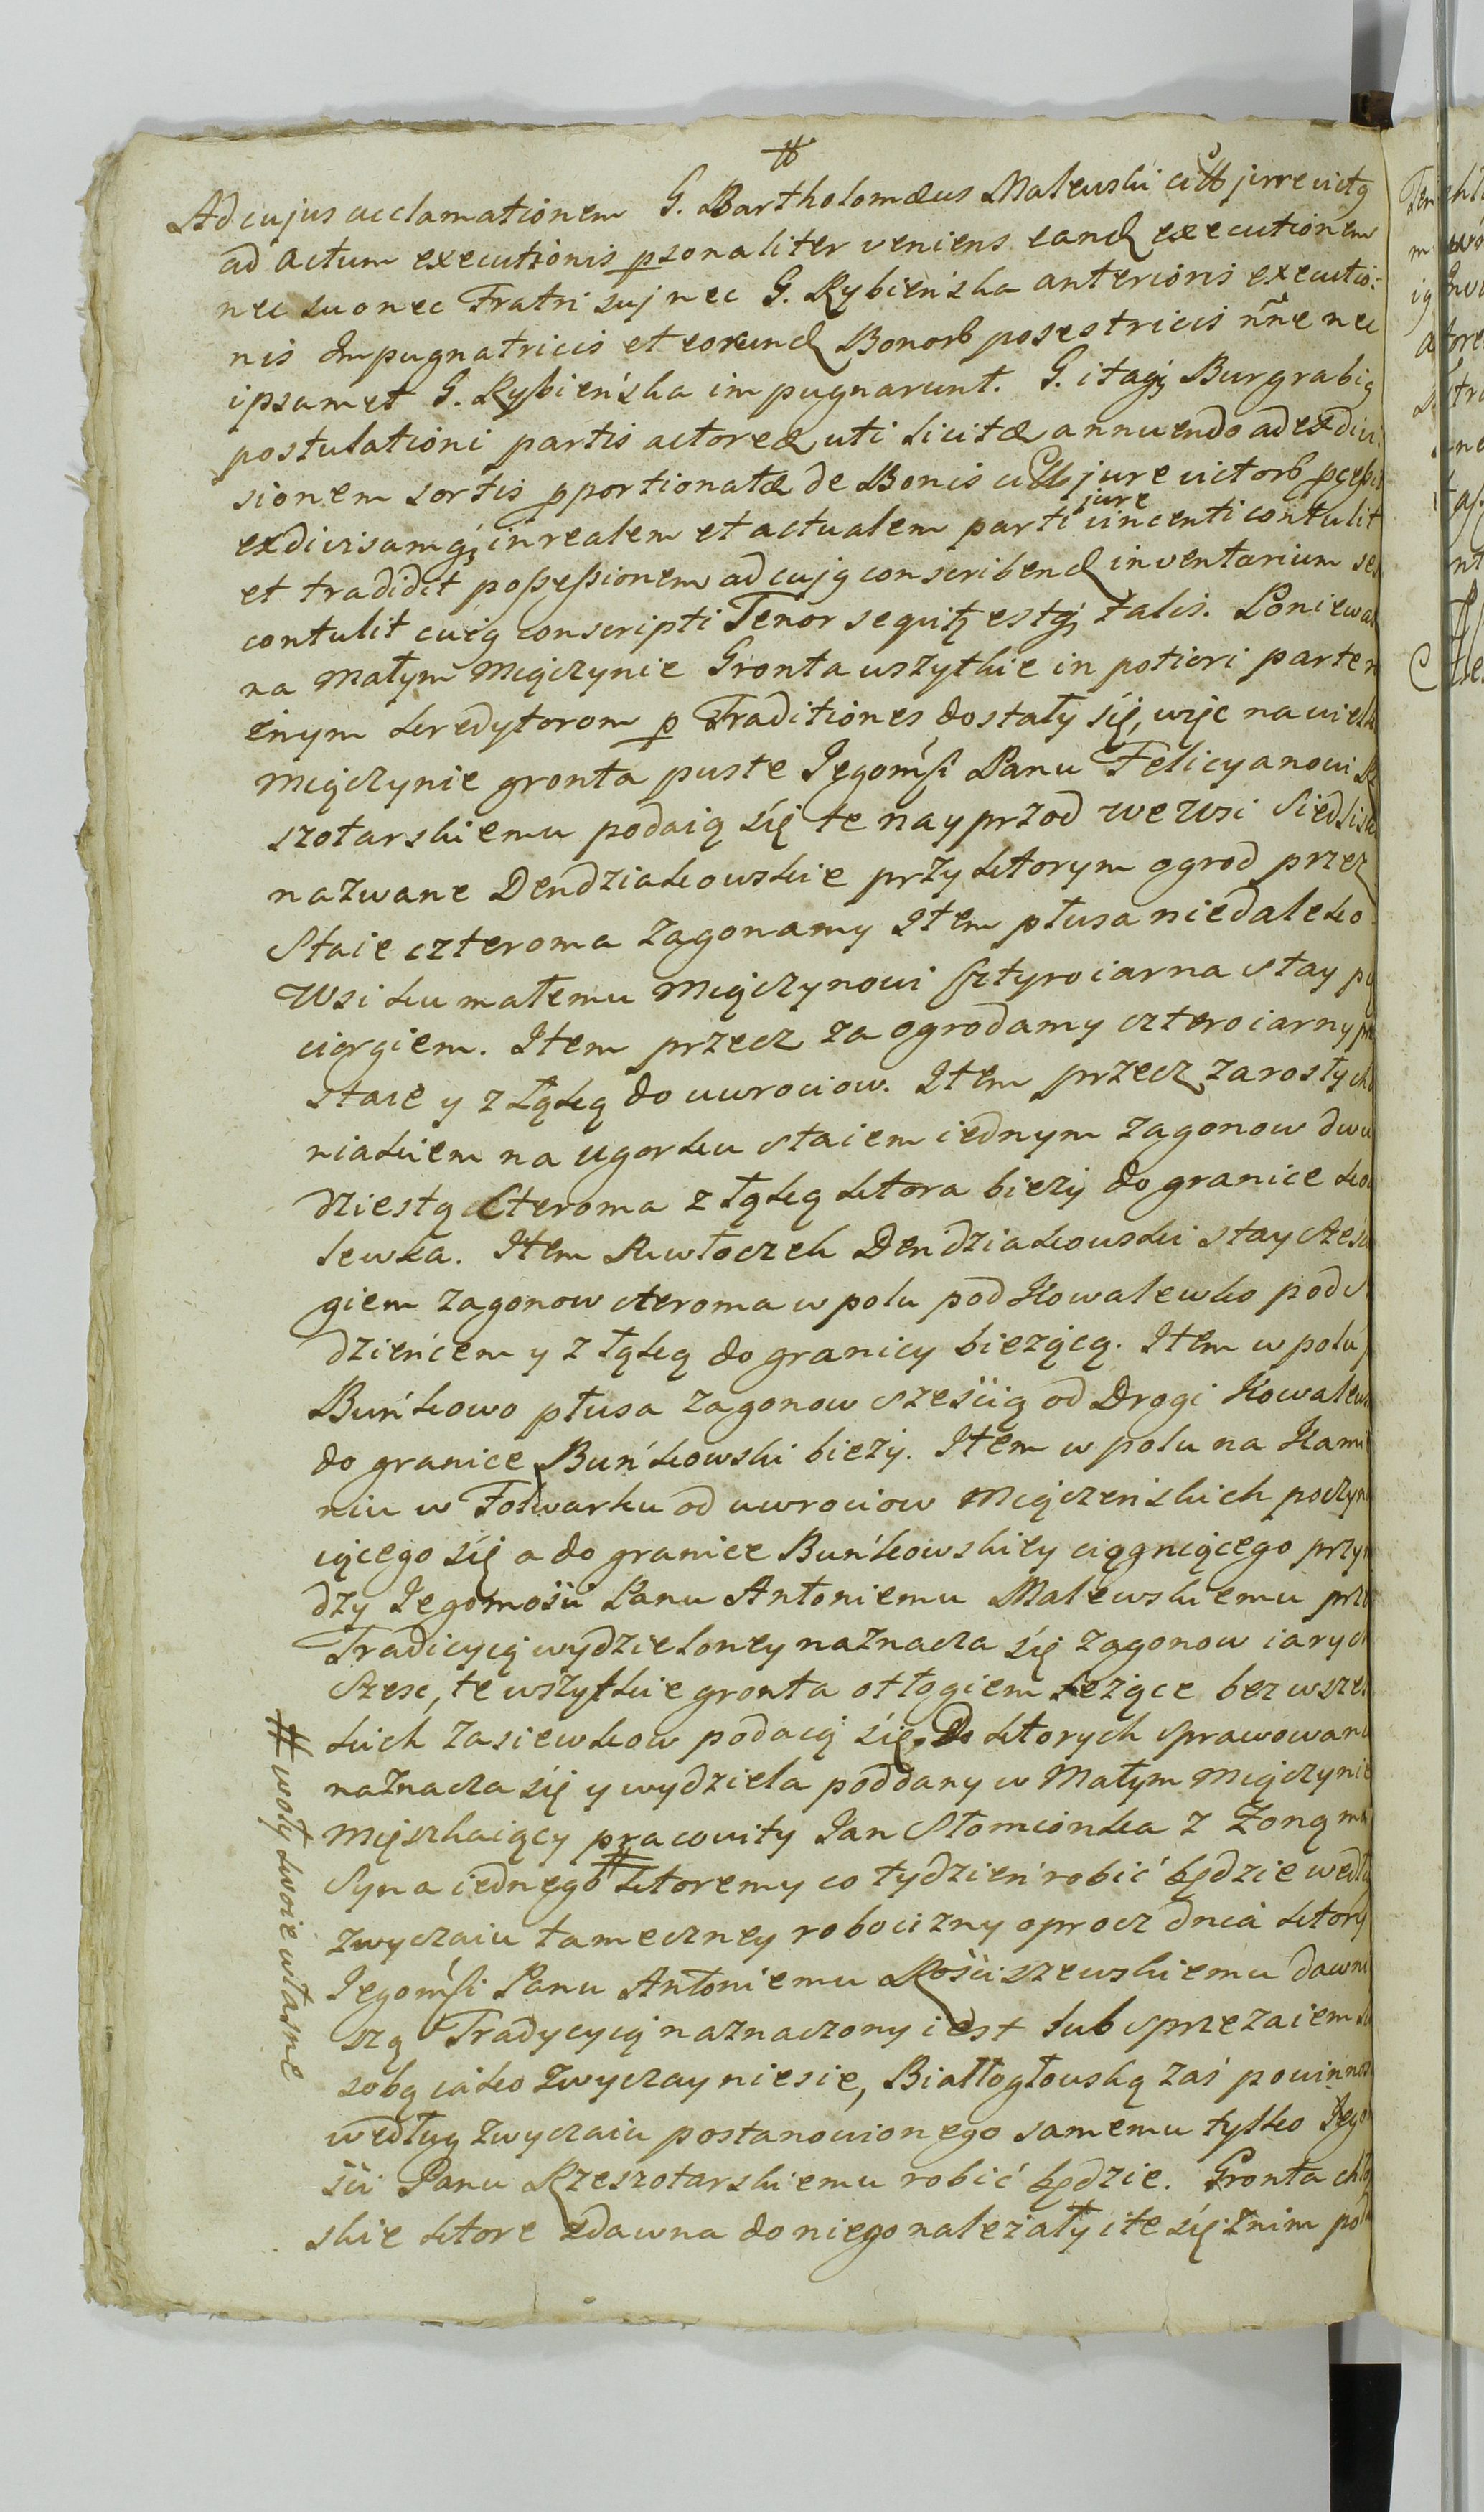 #
Ad cujus acclamationem G. Bartholomæus Malewski jurevictg
ad actum executionis psonaliter veniens eand executionem
nec suo nec Fratri suj nec G. Rybienska anterioris executio:
nis Impugnatricis et eorund Bonorb posestricis nñe nec
ipsamet G. Rybieńska impugnarunt. G. itaq Burgrabig
postulationi partis actoreæ uti licitæ annuendo ad exdivi
sionem sortis pportionatæ de Bonis jure victorb
exdivisamq in realem et actualem parti jure vincenti contulit
et tradidit possessionem ad cujg conscribend inventarium se
contulit cuig conscripti Tenor sequit estq talis. Poniewa
na Małym Mięczynie Gronta wszytkie in potiori parte
einym kredytorom p Traditiones dostały się, więc na
Mięczynie gronta puste Jegomśi Panu Felicyanowi
szotarskiemu podaią się te nayprzod we wsi
nazwane Dendziakowskie przy ktorym ogrod przez
Staie czteroma zagonamy Item płusa niedaleko
Wsi ku małemu Mięczynowi sztyroiarna stay
ciorgiem. Item przecz za ogrodamy czteroiarny
staie y z łąką do uwrociow. Item przecz zarosły
niakiem na ugorku staiem iednym zagonow dwu
dziestą cteroma z łąką ktora bieży do granice
lewka. Item Rzwłoczek Dendziakowski stay
giem zagonow cteroma w polu pod Kowalewko pod
dzieńcem y z łąką do granicy bieżącą. Item w polu
Buńkowo płusa zagonow sześcią od Drogi
do granice Buńkowski bieży. Item w polu na
niu w Folwarku od uwrociow Mięczeńskich
iącego się a do granice Buńkowskiey ciągnącego
dzy Jegomości Panu Antoniemu Malewskiemu
Tradicycią wydzieloney naznacza się zagonow iarych
Szesc, te wszytkie gronta otłogiem leżące bez
kich zasiewkow podaią się, Do ktorych sprawowani
naznacza się y wydziela poddany w Małym Mięczynie
Mięszkaiący pracowity Jan Słomionka z Żoną
Syna iednego # ktoremy co tydzień robić będzie
zwyczaiu tameczney robocizny oprocz dnia ktory
Jegomśi Panu Antoniemu Kościszewskiemu
szą Tradycycią naznaczony iest lub sprzezaiem
sobą iako zwyczay niesie, Białłogłowską zaś
według zwyczaiu postanowionego samemu tylko
ści Panu Rzeszotarskiemu robić będzie. Gronta
skie ktore zdawna do niego należały i te się z nim
# woły dwoie własne